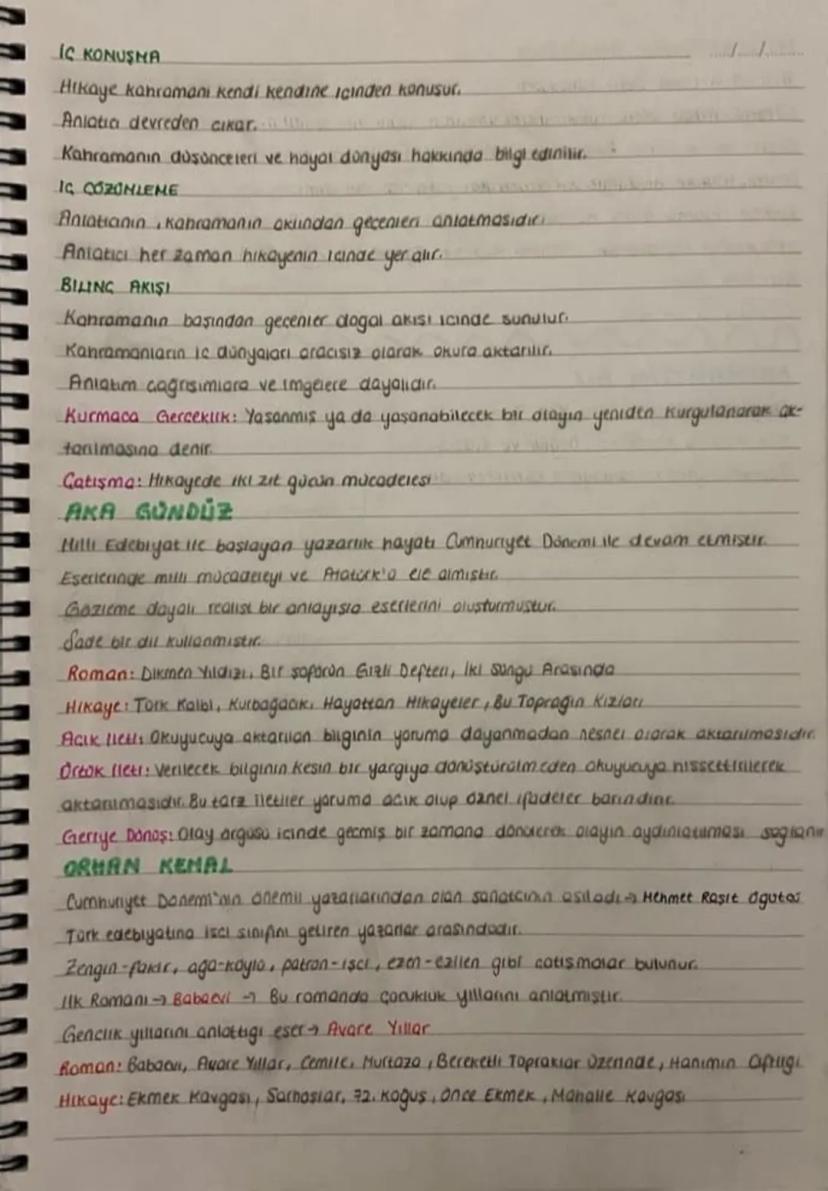 İÇ KONUŞMA ..../..../........
Hikaye kahramanı kendi kendine içinden konuşur.
Anlatıcı devreden çıkar.
Kahramanın düşünceleri ve hayal dünyası hakkında bilgi edinilir.
İÇ ÇÖZÜMLEME
Anlatıcının, kahramanın aklından geçenleri anlatmasıdır.
Anlatıcı her zaman hikayenin içinde yer alır.
BİLİNÇ AKIŞI
Kahramanın başından geçenler doğal akışı içinde sunulur.
Kahramanların iç dünyaları aracısız olarak okura aktarılır.
Anlatım çağrışımlara ve imgelere dayalıdır.
Kurmaca Gerçeklik: Yaşanmış ya da yaşanabilecek bir olayın yeniden kurgulanarak ak-
tarılmasına denir.
Çatışma: Hikayede iki zıt gücün mücadelesi
AKA GÜNDÜZ
Milli Edebiyat ile başlayan yazarlık hayatı Cumhuriyet Dönemi ile devam etmiştir.
Eserlerinde milli mücadeleyi ve Atatürk'ü ele almıştır.
Gözleme dayalı realist bir anlayışla eserlerini oluşturmuştur.
Sade bir dil kullanmıştır.
Roman: Dikmen Yıldızı, Bir Şoförün Gizli Defteri, İki Süngü Arasında
Hikaye: Türk Kalbi, Kurbağacık, Hayattan Hikayeler, Bu Toprağın Kızları
Açık İleti: Okuyucuya aktarılan bilginin yoruma dayanmadan nesnel olarak aktarılmasıdır.
Örtük İleti: Verilecek bilginin kesin bir yargıya dönüştürülmeden okuyucuya hissettirilerek
aktarılmasıdır. Bu tarz iletiler yoruma açık olup öznel ifadeler barındırır.
Geriye Dönüş: Olay örgüsü içinde geçmiş bir zamana dönülerek olayın aydınlatılması sağlanır
ORHAN KEMAL
Cumhuriyet Dönemi'nin önemli yazarlarından olan sanatçının asıl adı → Mehmet Raşit Öğütçü
Türk edebiyatına işçi sınıfını getiren yazarlar arasındadır.
Zengin-fakir, ağa-köylü, patron-işçi, ezen-ezilen gibi çatışmalar bulunur.
İlk Romanı → Babaevi → Bu romanda çocukluk yıllarını anlatmıştır.
Gençlik yıllarını anlattığı eser → Avare Yıllar
Roman: Babaevi, Avare Yıllar, Cemile, Murtaza, Bereketli Topraklar Üzerinde, Hanımın Çiftliği
Hikaye: Ekmek Kavgası, Sarhoşlar, 72. Koğuş, Önce Ekmek, Mahalle Kavgası